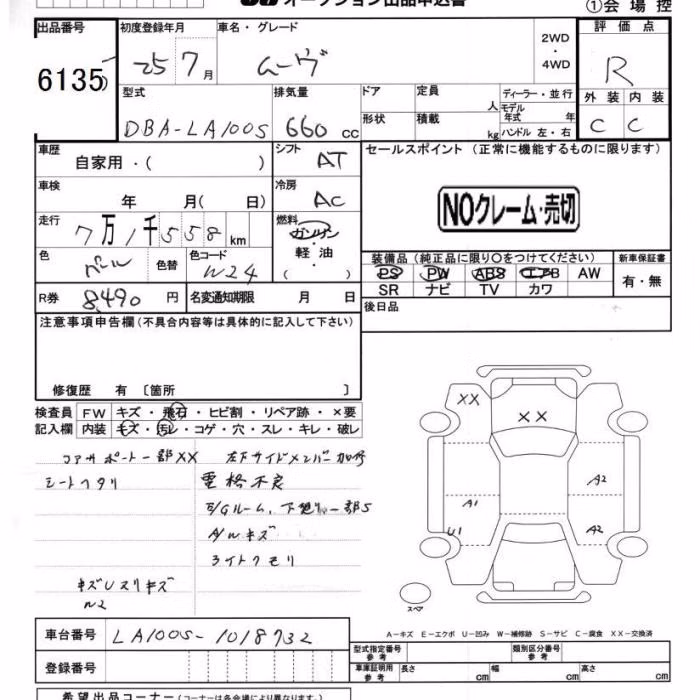 オークション出品申込書
①会場控
出品番号
6135
初度登録年月
25 7月
車名・グレード
ムーヴ
2WD
・
4WD
評価点
R
外装 内装
C C
型式
DBA-LA100S
排気量
660 cc
ドア
形状
定員
人
積載
kg
ディーラー・並行
モデル年式 年
ハンドル 左・右
車歴
自家用・( )
シフト
AT
セールスポイント (正常に機能するものに限ります)
NOクレーム・売切
車検
年 月( 日)
冷房
AC
走行
7万1千558km
燃料
ガソリン
軽油
( )
色
パール
色替
色コード
W24
装備品 (純正品に限り○をつけてください)
PS PW ABS エアB AW
SR ナビ TV カワ
新車保証書
有・無
R券
8,490円
名変通知期限 月 日
後日品
注意事項申告欄(不具合内容等は具体的に記入して下さい)
修復歴 有 〔箇所 〕
検査員
記入欄
FW キズ・飛石・ヒビ割・リペア跡・×要
内装 キズ・汚レ・コゲ・穴・スレ・キレ・破レ
コアサポート一部XX 左下サイドメンバー
シートヘタリ
E/Gルーム、下廻り一部S
A/Wキズ
ライトクモリ
キズUスリキズ
W2
XX
XX
A2
A1
A2
U1
スペア
A-キズ E-エクボ U-凹み W-補修跡 S-サビ C-腐食 XX-交換済
車台番号
LA100S-1018732
登録番号
型式指定番号
参考
類別区分番号
参考
車庫証明用
参考
長さ cm
幅 cm
高さ cm
希望出品コーナー(コーナーは各会場により異なります)